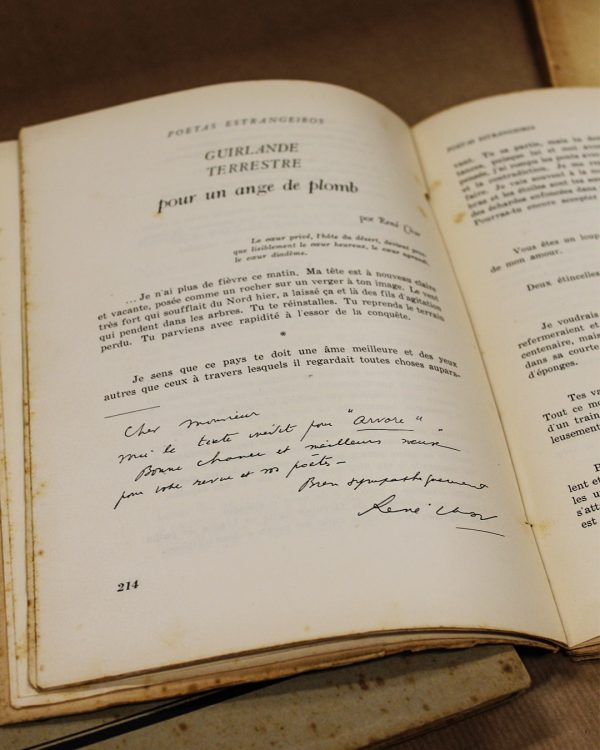 POETAS ESTRANGEIROS
GUIRLANDE
TERRESTRE
pour un ange de plomb
por René Char
Le cœur privé, l'hôte du désert, devient pres-
que lisiblement le cœur heureux, le cœur agrandi,
le cœur diadème.
...Je n'ai plus de fièvre ce matin. Ma tête est à nouveau claire
et vacante, posée comme un rocher sur un verger à ton image. Le vent
très fort qui soufflait du Nord hier, a laissé ça et là des fils d'agitation
qui pendent dans les arbres. Tu te réinstalles. Tu reprends le terrain
perdu. Tu parviens avec rapidité à l'essor de la conquête.
*
Je sens que ce pays te doit une âme meilleure et des yeux
autres que ceux à travers lesquels il regardait toutes choses aupara-
Cher Monsieur
Voici le texte inédit pour "arvore"
Bonne chance et meilleurs vœux
pour votre revue et vos poètes —
Bien sympathiquement
René Char
214
POETAS ESTRANGEIROS
vant. Tu es partie, mais tu
tances, puisque
pensée, j'ai rompu les ponts avec
et la contradiction. Je me
faire. Je vais souvent à la
bras et les étoiles sont tes
des échardes enfouies dans
Pourras-tu encore accepter
Vous êtes un loup
de mon amour.
Deux étincelles
Je voudrais
refermeraient et
centenaire, mais
dans sa courte
d'éponges.
Tes
Tout ce
d'un train
leusement
lent et
les
s'att
est